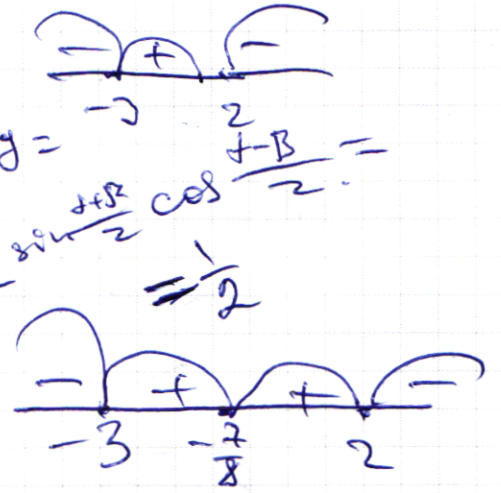 − + −
−3 2
y =
sin \frac{α+β}{2} cos \frac{α−β}{2} =
= \frac{1}{2}
− + + −
−3 −\frac{7}{8} 2